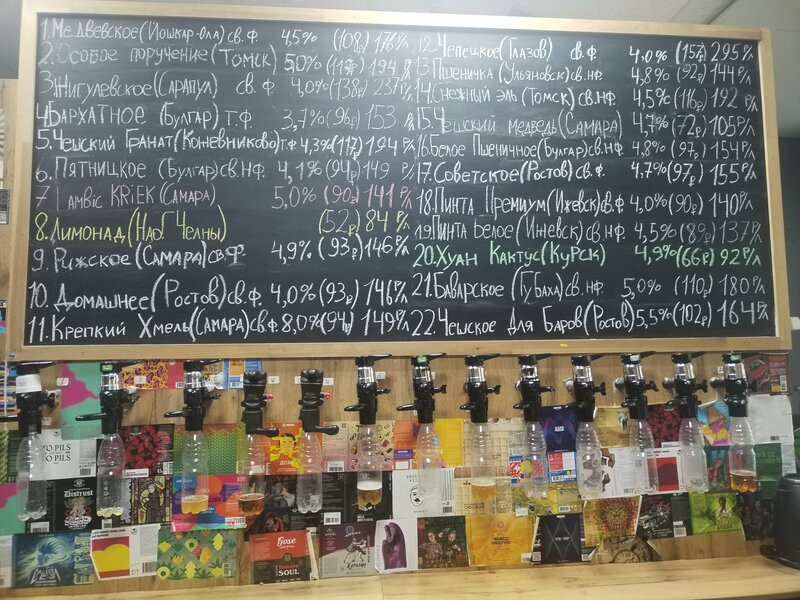 1. Медвевское (Йошкар-Ола) св.ф 4,5% (108р) 176 р/л
2. Особое поручение (Томск) 5,0% (119р) 194 р/л
3. Жигулевское (Сарапул) св.ф 4,0% (138р) 237 р/л
4. Бархатное (Булгар) т.ф. 3,7% (96р) 153 р/л
5. Чешский Гранат (Кожевниково) т.ф 4,3% (117) 194 р/л
6. Пятницкое (Булгар) св.нф. 4,1% (94р) 149 р/л
7 Ламвic KRiEK (Самара) 5,0% (90р) 141 р/л
8. Лимонад (Наб. Челны) (52р) 84 р/л
9. Рижское (Самара) св.ф 4,9% (93р) 146 р/л
10. Домашнее (Ростов) св.ф. 4,0% (93р) 146 р/л
11. Крепкий Хмель (Самара) св.ф 8,0% (94р) 149 р/л
12. Чепецкое (Глазов) св.ф 4,0% (157р) 295 р/л
13 Пшеничка (Ульяновск) св.нф 4,8% (92р) 144 р/л
14. Снежный эль (Томск) св.нф. 4,5% (116р) 192 р/л
15. Чешский медведь (Самара) 4,7% (72р) 105 р/л
16. Белое Пшеничное (Булгар) св.нф. 4,8% (97р) 154 р/л
17. Советское (Ростов) св.ф. 4,7% (97р) 155 р/л
18. Пинта Премиум (Ижевск) ф. 4,0% (90р) 140 р/л
19. Пинта Белое (Ижевск) св.нф. 4,5% (89р) 137 р/л
20. Хуан Кактус (Курск) 4,9% (66р) 92 р/л
21. Баварское (Губаха) св.нф. 5,0% (110р) 180 р/л
22. Чешское Для Баров (Ростов) 5,5% (102р) 164 р/л
TO PILS
Distrust
Gose
SOUL
MANGO